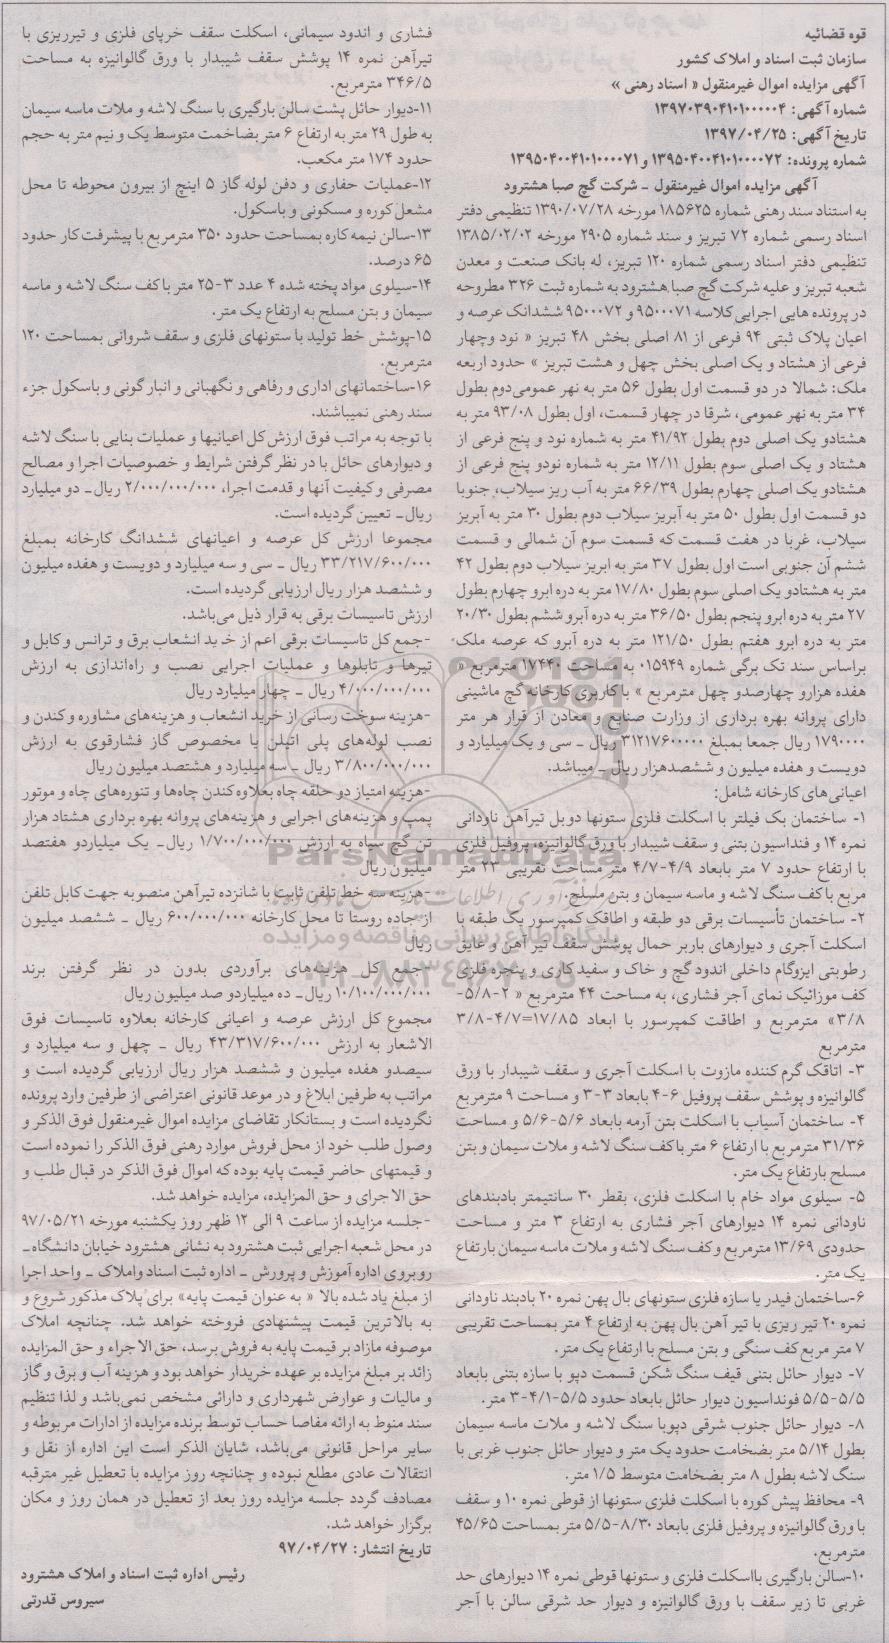 قوه قضائیه
سازمان ثبت اسناد و املاک کشور
آگهی مزایده اموال غیرمنقول « اسناد رهنی »
شماره آگهی: ۱۳۹۷۰۳۹۰۴۱۰۱۰۰۰۰۰۴
تاریخ آگهی: ۱۳۹۷/۰۴/۲۵
شماره پرونده: ۱۳۹۵۰۴۰۰۴۱۰۱۰۰۰۰۷۲ و ۱۳۹۵۰۴۰۰۴۱۰۱۰۰۰۰۷۱
آگهی مزایده اموال غیرمنقول ـ شرکت گچ صبا هشترود
به استناد سند رهنی شماره ۱۸۵۶۲۵ مورخه ۱۳۹۰/۰۷/۲۸ تنظیمی دفتر
اسناد رسمی شماره ۷۲ تبریز و سند شماره ۲۹۰۵ مورخه ۱۳۸۵/۰۲/۰۲
تنظیمی دفتر اسناد رسمی شماره ۱۲۰ تبریز، له بانک صنعت و معدن
شعبه تبریز و علیه شرکت گچ صبا هشترود به شماره ثبت ۳۲۶ مطروحه
در پرونده هایی اجرایی کلاسه ۹۵۰۰۰۷۱ و ۹۵۰۰۰۷۲ ششدانگ عرصه و
اعیان پلاک ثبتی ۹۴ فرعی از ۸۱ اصلی بخش ۴۸ تبریز « نود وچهار
فرعی از هشتاد و یک اصلی بخش چهل و هشت تبریز » حدود اربعه
ملک: شمالا در دو قسمت اول بطول ۵۶ متر به نهر عمومی‌دوم بطول
۳۴ متر به نهر عمومی، شرقا در چهار قسمت، اول بطول ۹۳/۰۸ متر به
هشتادو یک اصلی دوم بطول ۴۱/۹۲ متر به شماره نود و پنج فرعی از
هشتاد و یک اصلی سوم بطول ۱۲/۱۱ متر به شماره نودو پنج فرعی از
هشتادو یک اصلی چهارم بطول ۶۶/۳۹ متر به آب ریز سیلاب، جنوبا
دو قسمت اول بطول ۵۰ متر به آبریز سیلاب دوم بطول ۳۰ متر به آبریز
سیلاب، غربا در هفت قسمت که قسمت سوم آن شمالی و قسمت
ششم آن جنوبی است اول بطول ۳۷ متر به ابریز سیلاب دوم بطول ۴۲
متر به هشتادو یک اصلی سوم بطول ۱۷/۸۰ متر به دره ابرو چهارم بطول
۲۷ متر به دره ابرو پنجم بطول ۳۶/۵۰ متر به دره آبرو ششم بطول ۲۰/۳۰
متر به دره ابرو هفتم بطول ۱۲۱/۵۰ متر به دره آبرو که عرصه ملک
براساس سند تک برگی شماره ۰۱۵۹۴۹ به مساحت ۱۷۴۴۰ مترمربع «
هفده هزارو چهارصدو چهل مترمربع » با کاربری کارخانه گچ ماشینی
دارای پروانه بهره برداری از وزارت صنایع و معادن از قرار هر متر
۱۷۹۰۰۰۰ ریال جمعا بمبلغ ۳۱۲۱۷۶۰۰۰۰۰ ریال ـ سی و یک میلیارد و
دویست و هفده میلیون و ششصدهزار ریال ـ میباشد.
اعیانی‌های کارخانه شامل:
۱- ساختمان بک فیلتر با اسکلت فلزی ستونها دوبل تیرآهن ناودانی
نمره ۱۴ و فنداسیون بتنی و سقف شیبدار با ورق گالوانیزه، پروفیل فلزی
با ارتفاع حدود ۷ متر بابعاد ۴/۹-۴/۷ متر مساحت تقریبی ۲۳ متر
مربع با کف سنگ لاشه و ماسه سیمان و بتن مسلح.
۲- ساختمان تأسیسات برقی دو طبقه و اطاقک کمپرسور یک طبقه با
اسکلت آجری و دیوارهای باربر حمال پوشش سقف تیر آهن و عایق
رطوبتی ایزوگام داخلی اندود گچ و خاک و سفید کاری و پنجره فلزی
کف موزائیک نمای آجر فشاری، به مساحت ۴۴ مترمربع « ۲-۵/۸-
۳/۸» مترمربع و اطاقت کمپرسور با ابعاد ۱۷/۸۵=۴/۷-۳/۸
مترمربع
۳- اتاقک گرم کننده مازوت با اسکلت آجری و سقف شیبدار با ورق
گالوانیزه و پوشش سقف پروفیل ۶-۴ بابعاد ۳-۳ و مساحت ۹ مترمربع
۴- ساختمان آسیاب با اسکلت بتن آرمه بابعاد ۵/۶-۵/۶ و مساحت
۳۱/۳۶ مترمربع با ارتفاع ۶ متر با کف سنگ لاشه و ملات سیمان و بتن
مسلح بارتفاع یک متر.
۵- سیلوی مواد خام با اسکلت فلزی، بقطر ۳۰ سانتیمتر بادبندهای
ناودانی نمره ۱۴ دیوارهای آجر فشاری به ارتفاع ۳ متر و مساحت
حدودی ۱۳/۶۹ مترمربع و کف سنگ لاشه و ملات ماسه سیمان بارتفاع
یک متر.
۶-ساختمان فیدر یا سازه فلزی ستونهای بال پهن نمره ۲۰ بادبند ناودانی
نمره ۲۰ تیر ریزی با تیر آهن بال پهن به ارتفاع ۴ متر بمساحت تقریبی
۷ متر مربع کف سنگی و بتن مسلح با ارتفاع یک متر.
۷- دیوار حائل بتنی قیف سنگ شکن قسمت دپو با سازه بتنی بابعاد
۵/۵-۵/۵ فونداسیون دیوار حائل بابعاد حدود ۵/۵-۴/۱-۳ متر.
۸- دیوار حائل جنوب شرقی دپوبا سنگ لاشه و ملات ماسه سیمان
بطول ۵/۱۴ متر بضخامت حدود یک متر و دیوار حائل جنوب غربی با
سنگ لاشه بطول ۸ متر بضخامت متوسط ۱/۵ متر.
۹- محافظ پیش کوره با اسکلت فلزی ستونها از قوطی نمره ۱۰ و سقف
با ورق گالوانیزه و پروفیل فلزی بابعاد ۸/۳۰-۵/۵ متر بمساحت ۴۵/۶۵
مترمربع.
۱۰-سالن بارگیری بااسکلت فلزی و ستونها قوطی نمره ۱۴ دیوارهای حد
غربی تا زیر سقف با ورق گالوانیزه و دیوار حد شرقی سالن با آجر
فشاری و اندود سیمانی، اسکلت سقف خرپای فلزی و تیرریزی با
تیرآهن نمره ۱۴ پوشش سقف شیبدار با ورق گالوانیزه به مساحت
۳۴۶/۵ مترمربع.
۱۱-دیوار حائل پشت سالن بارگیری با سنگ لاشه و ملات ماسه سیمان
به طول ۲۹ متر به ارتفاع ۶ متر بضاخمت متوسط یک و نیم متر به حجم
حدود ۱۷۴ متر مکعب.
۱۲-عملیات حفاری و دفن لوله گاز ۵ اینچ از بیرون محوطه تا محل
مشعل کوره و مسکونی و باسکول.
۱۳-سالن نیمه کاره بمساحت حدود ۳۵۰ مترمربع با پیشرفت کار حدود
۶۵ درصد.
۱۴-سیلوی مواد پخته شده ۴ عدد ۳-۲۵ متر با کف سنگ لاشه و ماسه
سیمان و بتن مسلح به ارتفاع یک متر.
۱۵-پوشش خط تولید با ستونهای فلزی و سقف شروانی بمساحت ۱۲۰
مترمربع.
۱۶-ساختمانهای اداری و رفاهی و نگهبانی و انبار گونی و باسکول جزء
سند رهنی نمیباشند.
با توجه به مراتب فوق ارزش کل اعیانیها و عملیات بنایی با سنگ لاشه
و دیوارهای حائل با در نظر گرفتن شرایط و خصوصیات اجرا و مصالح
مصرفی و کیفیت آنها و قدمت اجرا، ۲/۰۰۰/۰۰۰/۰۰۰ ریال ـ دو میلیارد
ریال ـ تعیین گردیده است.
مجموعا ارزش کل عرصه و اعیانهای ششدانگ کارخانه بمبلغ
۳۳/۲۱۷/۶۰۰/۰۰۰ ریال ـ سی و سه میلیارد و دویست و هفده میلیون
و ششصد هزار ریال ارزیابی گردیده است.
ارزش تاسیسات برقی به قرار ذیل می‌باشد.
-جمع کل تاسیسات برقی اعم از خرید انشعاب برق و ترانس و کابل و
تیرها و تابلوها و عملیات اجرایی نصب و راه‌اندازی به ارزش
۴/۰۰۰/۰۰۰/۰۰۰ ریال ـ چهار میلیارد ریال
-هزینه سوخت رسانی از خرید انشعاب و هزینه‌های مشاوره و کندن و
نصب لوله‌های پلی اتیلن یا مخصوص گاز فشارقوی به ارزش
۳/۸۰۰/۰۰۰/۰۰۰ ریال ـ سه میلیارد و هشتصد میلیون ریال
-هزینه امتیاز دو حلقه چاه بعلاوه کندن چاه‌ها و تنوره‌های چاه و موتور
پمپ و هزینه‌های اجرایی و هزینه‌های پروانه بهره برداری هشتاد هزار
تن گچ سیاه به ارزش ۱/۷۰۰/۰۰۰/۰۰۰ ریال ـ یک میلیاردو هفتصد
میلیون ریال
-هزینه سه خط تلفن ثابت با شانزده تیرآهن منصوبه جهت کابل تلفن
از جاده روستا تا محل کارخانه ۶۰۰/۰۰۰/۰۰۰ ریال ـ ششصد میلیون
ریال
-جمع کل هزینه‌های برآوردی بدون در نظر گرفتن برند
۱۰/۱۰۰/۰۰۰/۰۰۰ ریال ـ ده میلیاردو صد میلیون ریال
مجموع کل ارزش عرصه و اعیانی کارخانه بعلاوه تاسیسات فوق
الاشعار به ارزش ۴۳/۳۱۷/۶۰۰/۰۰۰ ریال ـ چهل و سه میلیارد و
سیصدو هفده میلیون و ششصد هزار ریال ارزیابی گردیده است و
مراتب به طرفین ابلاغ و در موعد قانونی اعتراضی از طرفین وارد پرونده
نگردیده است و بستانکار تقاضای مزایده اموال غیرمنقول فوق الذکر و
وصول طلب خود از محل فروش موارد رهنی فوق الذکر را نموده است
و قیمتهای حاضر قیمت پایه بوده که اموال فوق الذکر در قبال طلب و
حق الاجرای و حق المزایده، مزایده خواهد شد.
-جلسه مزایده از ساعت ۹ الی ۱۲ ظهر روز یکشنبه مورخه ۹۷/۰۵/۲۱
در محل شعبه اجرایی ثبت هشترود به نشانی هشترود خیابان دانشگاه ـ
روبروی اداره آموزش و پرورش ـ اداره ثبت اسناد واملاک ـ واحد اجرا
از مبلغ یاد شده بالا « به عنوان قیمت پایه» برای پلاک مذکور شروع و
به بالاترین قیمت پیشنهادی فروخته خواهد شد. چنانچه املاک
موصوفه مازاد بر قیمت پایه به فروش برسد، حق الاجراء و حق المزایده
زائد بر مبلغ مزایده بر عهده خریدار خواهد بود و هزینه آب و برق و گاز
و مالیات و عوارض شهرداری و دارائی مشخص نمی‌باشد و لذا تنظیم
سند منوط به ارائه مفاصا حساب توسط برنده مزایده از ادارات مربوطه و
سایر مراحل قانونی می‌باشد، شایان الذکر است این اداره از نقل و
انتقالات عادی مطلع نبوده و چنانچه روز مزایده با تعطیل غیر مترقبه
مصادف گردد جلسه مزایده روز بعد از تعطیل در همان روز و مکان
برگزار خواهد شد.
تاریخ انتشار: ۹۷/۰۴/۲۷
رئیس اداره ثبت اسناد و املاک هشترود
سیروس قدرتی
ParsNamadData
پایگاه اطلاع رسانی مناقصه و مزایده